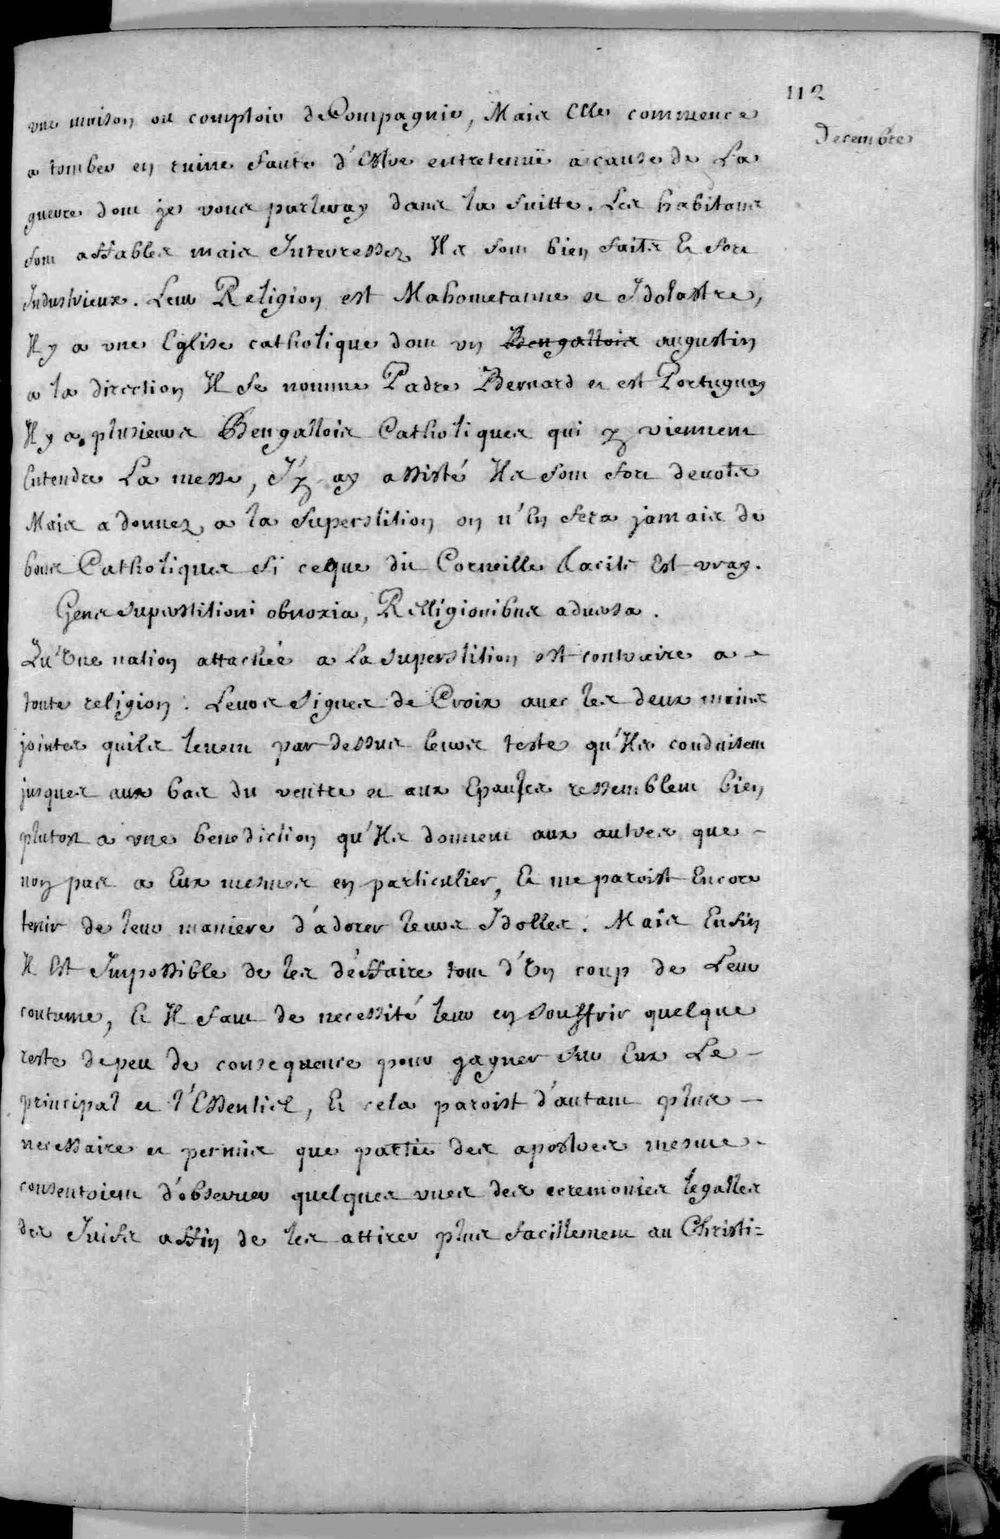 112
Decembre
vne maison ou comptoir de Compagnie, Mais Elle commence
a tomber en ruine faute d'Estre entretenuë a cause de La
guerre dont je vous parleray dans la suitte. Les habitans
sont affables mais Interressez Ils sont bien faits Et fort
Industrieux. Leur Religion est Mahometanne et Idolastre,
Il y a vne Eglise catholique dont vn Bengallois augustin
a la direction Il se nomme Padre Bernard et est Portugais
Il y a plusieurs Bengallois Catholiques qui y viennent
Entendre La messe, J'y ay assisté Ils sont fort devots
Mais adonnez a la superstition on n'En fera jamais de
bons Catholiques si ceque dit Corneille Tacite Est vray.
Gens superstitioni obnoxia, Relligionibus adversa.
Qu'Vne nation attachée a La superstition est contraire a
toute religion. Leurs signes de Croix avec les deux mains
jointes quils levent par dessus leurs teste qu'Ils conduisent
jusques aux bas du ventre et aux Epaules ressemblent bien
plutost a vne benediction qu'Ils donnent aux autres que
non pas a Eux mesmes en particulier, Et me paroist Encore
tenir de leur maniere d'adorer leurs Idolles. Mais Enfin
Il Est Impossible de les déffaire tout d'Vn coup de Leur
coutume, Et Il faut de necessité leur en souffrir quelque
reste depeu de consequence pour gagner sur Eux Le
principal et l'Essentiel, Et cela paroist d'autant plus
necessaire et permis que partie des apostres mesme
consentoient d'observer quelques vnes des ceremonies legalles
des Juifs affin de les attirer plus facillement au Christi=